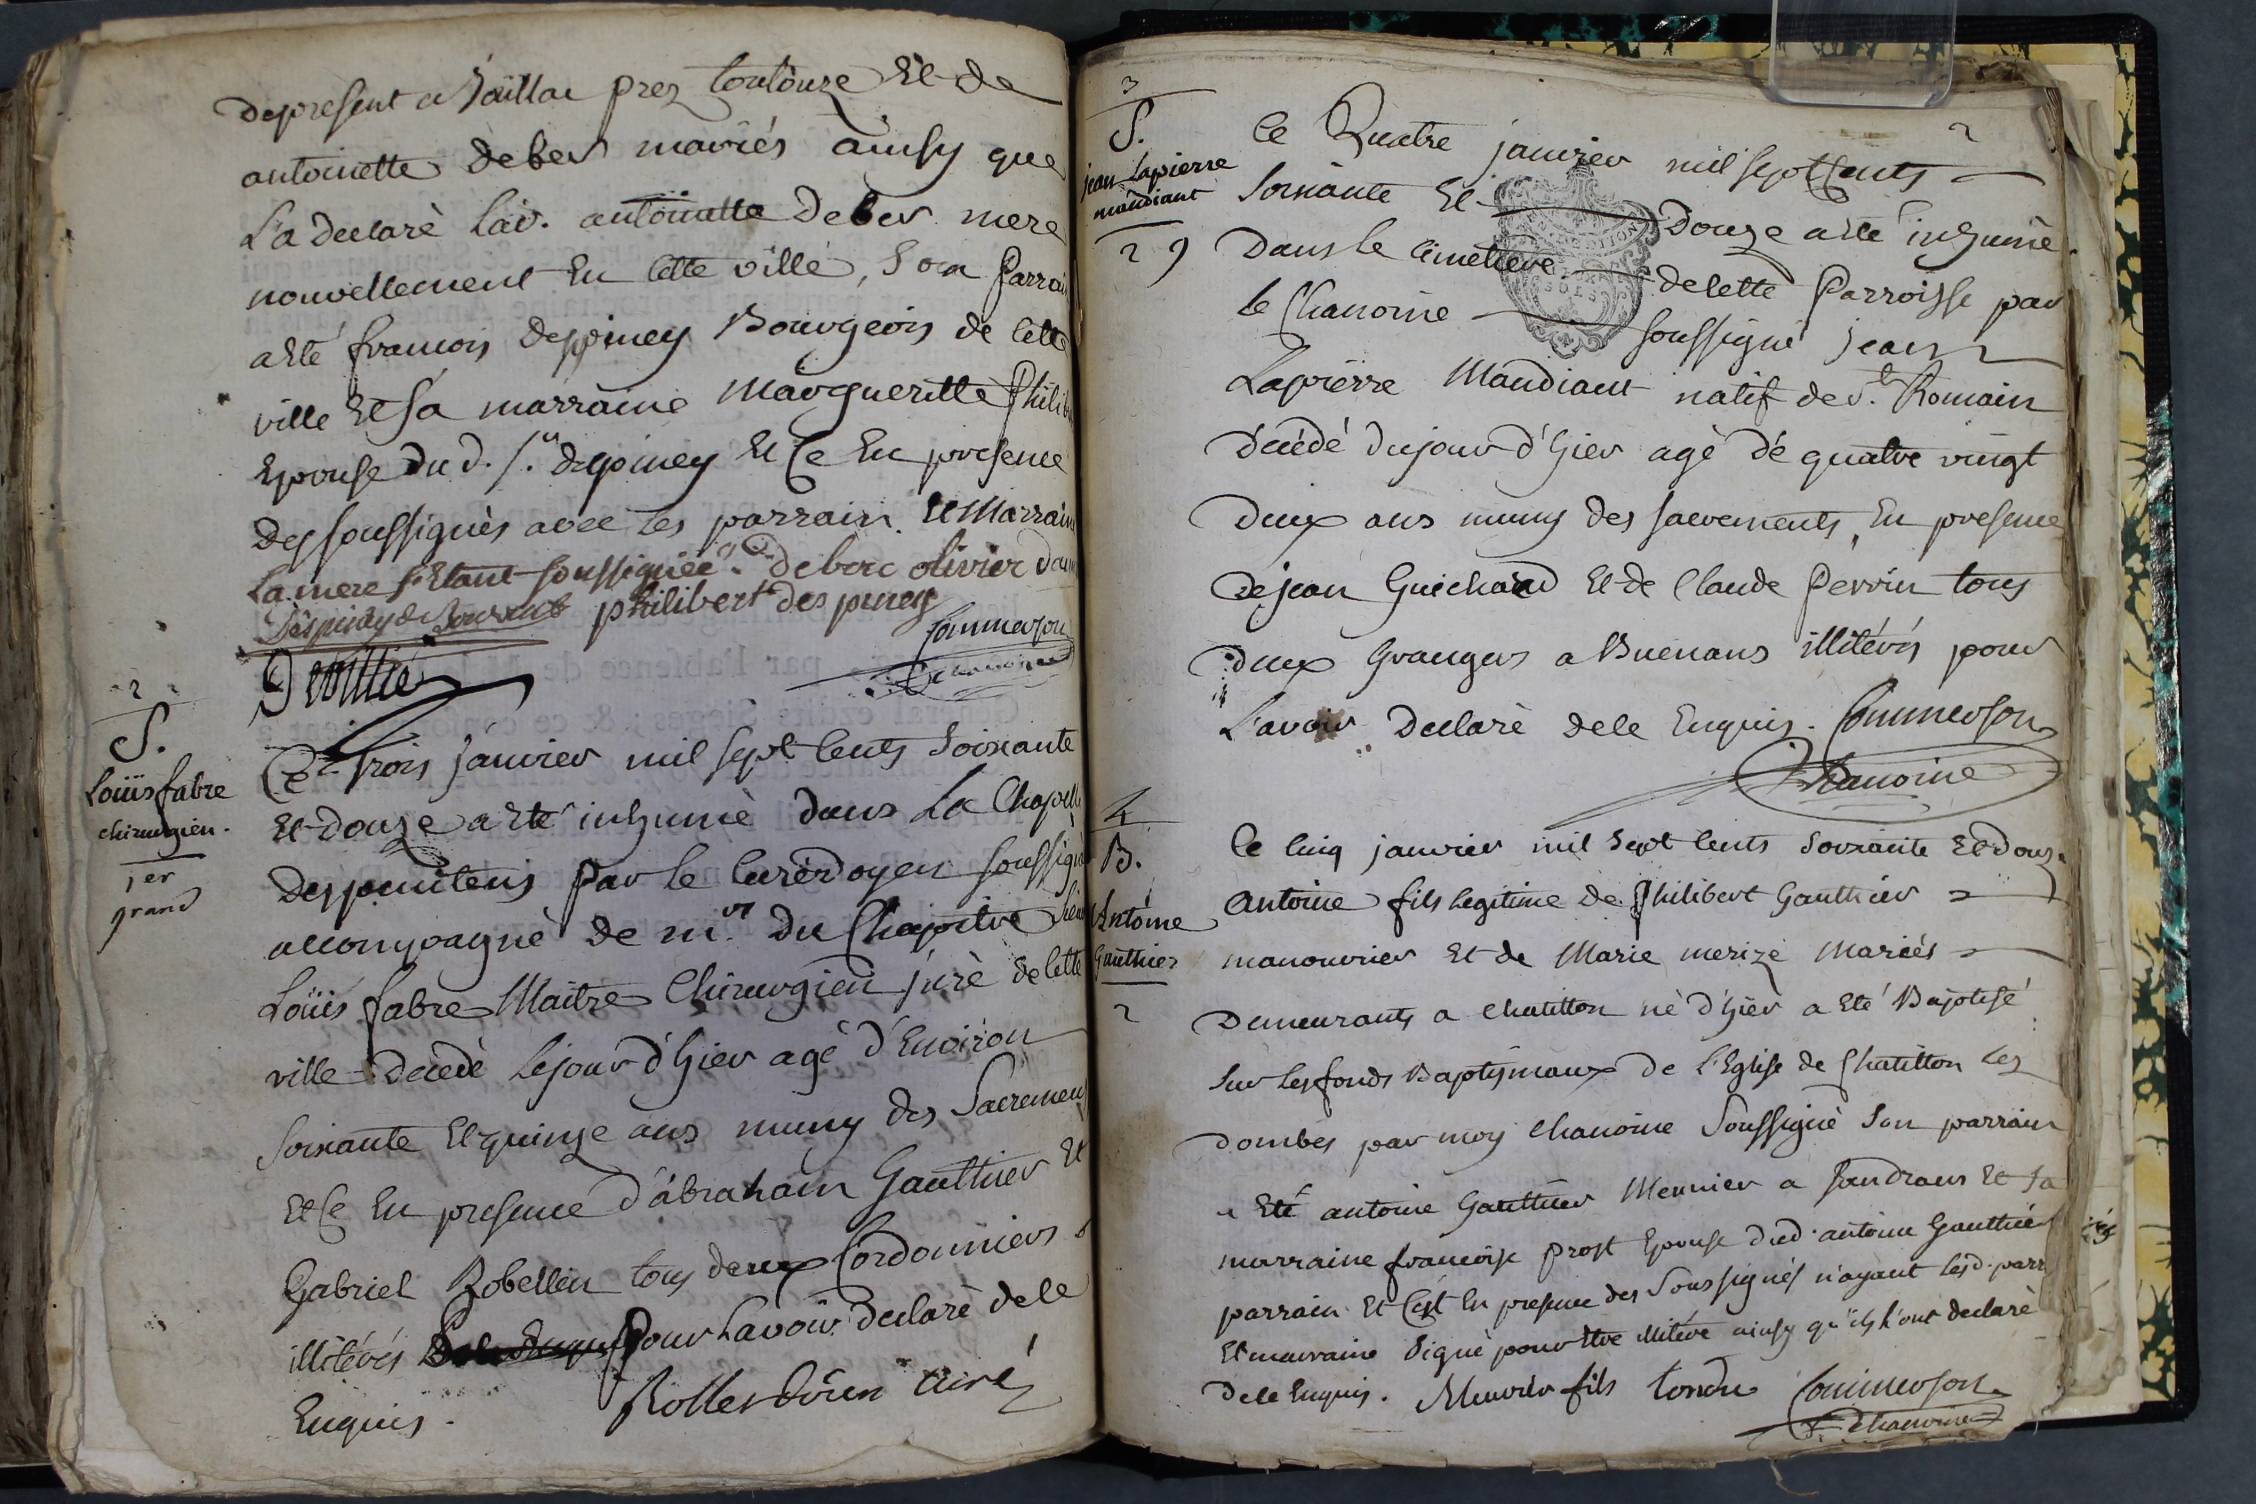 depresent a Gaillac prez toulouze Et de
antoinette deber mariés ainsy que
L'a declaré lad. antoinette deber mere
nouvellement En cette ville, son Parrain
a Eté francois desppiney Bourgeois de cette
ville Et sa marraine Margueritte Philib
Epouse du d. Sr. despiney Et Ce En presence
des soussignés avec les parrain Et Marraine
La mere s'Etant soussignée. deber olivier
Despiney philibert des piney
Commerson
Chanoine
Devillie
2
S.
Loüis fabre
chirurgien.
1er
grand
Ce trois janvier mil sept Cents Soixante
Et douze a Eté inhumé dans La Chapelle
des penitens par le Curé doyen soussigné
accompagné de mrs. du Chapitre Sieur
Loüis fabre Maitre Chirurgien juré de cette
ville decedé le jour d'hier agé d'Environ
soixante Et quinze ans muny des Sacremens
Et Ce En presence d'abraham Gauthier Et
Gabriel Robellin tous deux Cordonniers
illitérés pour Lavoir declaré de ce
Enquis. Curé
3
S.
jean Lapierre
mandiant
2
2
Ce Quatre janvier mil sept Cents
Soixante Et Douze a Eté inhumé
Dans le Cimetiere de cette Parroisse par
le Chanoine soussigné jean
Lapierre Mandiant natif de St. Romain
Décédé du jour d'hier agé dé quatre vingt
Deux ans muny des sacrements, En presence
de jean Guichard Et de Claude Perrin tous
deux Grangers a Buenans illitérés pour
L'avoir Declaré de ce Enquis. Commerson
Chanoine
4
B.
Antoine
Gauthier
2
Ce Cinq janvier mil Sept Cents Soixante Et douze
Antoine fils legitime de Philibert Gauthier
manouvrier Et de Marie merize Mariés
Demeurants a Chatillon né d'hier a Eté Baptisé
sur les fonds Baptismaux de l'Eglise de Chatillon les
dombes par moy Chanoine Soussigné Son parrain
a Eté antoine Gauthier Meunier a Sandrans Et Sa
marraine francoise prost Epouse dud. antoine Gauthier
parrain Et C'est En presence des Soussignés n'ayant lesd. parr
Et marraine Signé pour Etre illitéré ainsy qu'ils l'ont declaré
de ce Enquis. Meunier fils tondu Commerson
Chanoine